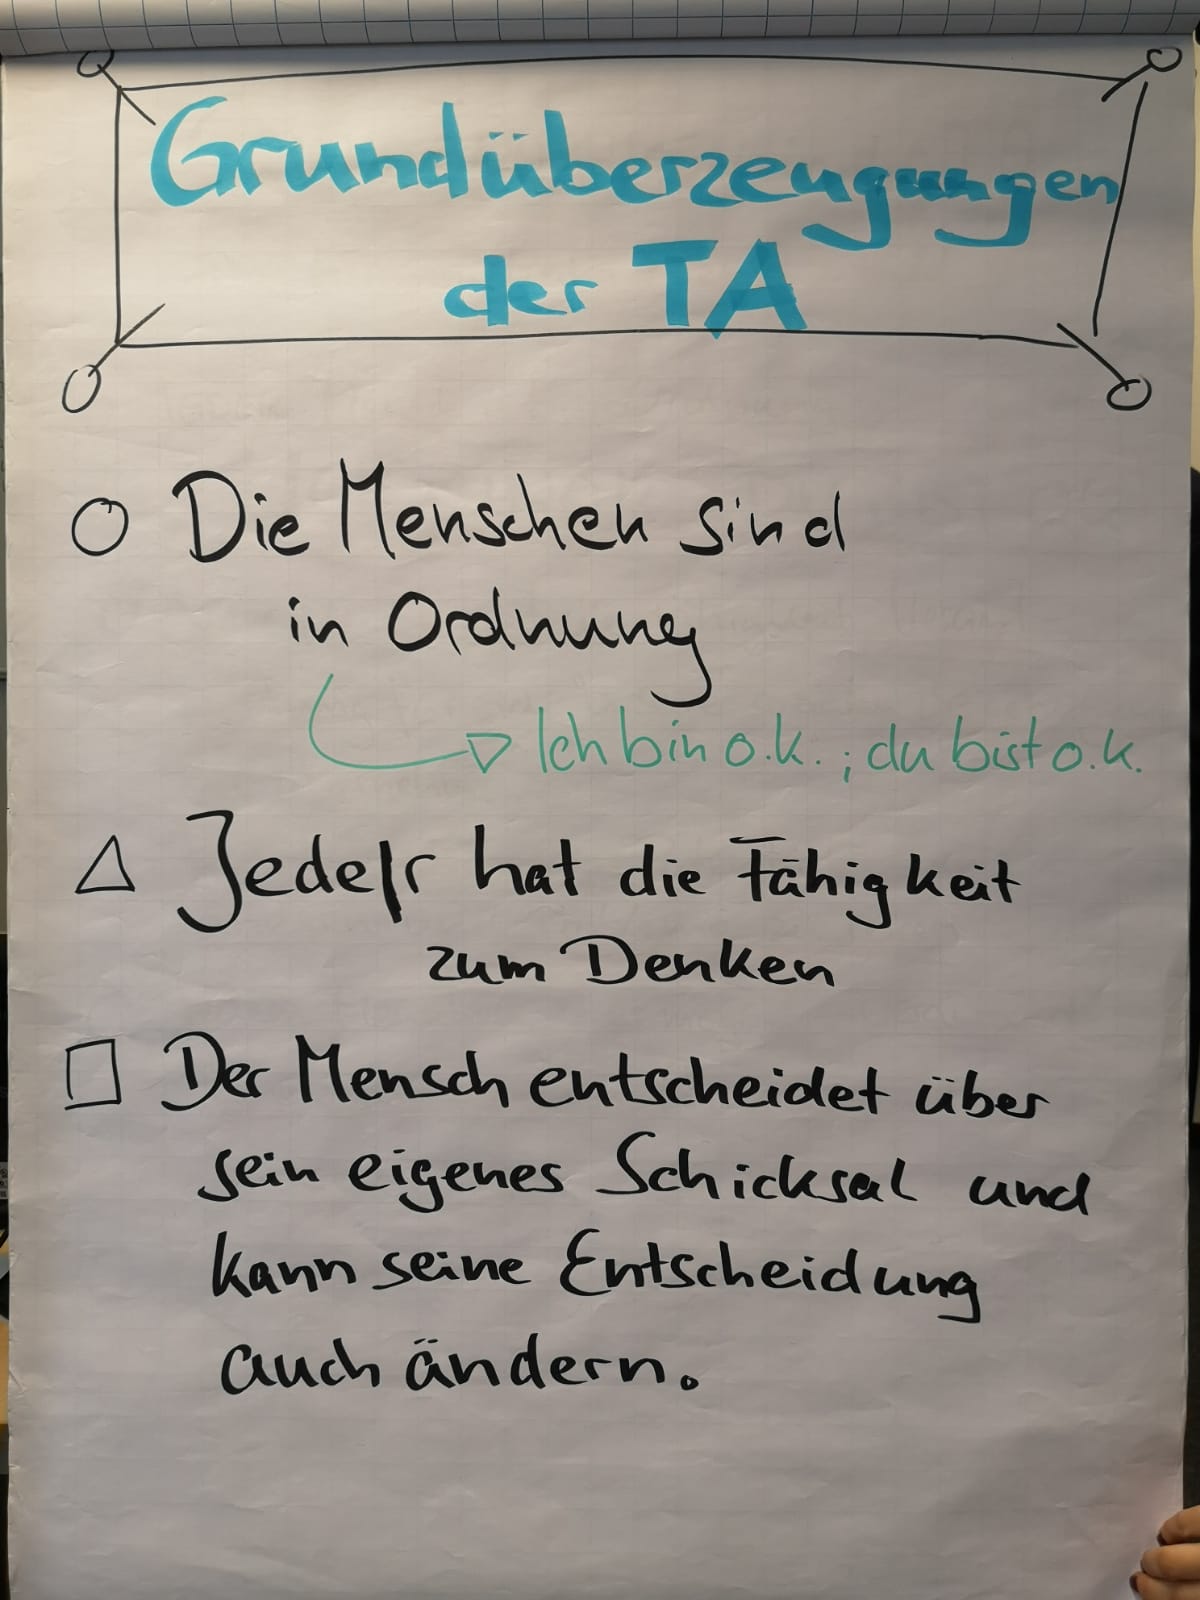 Grundüberzeugungen
der TA
Die Menschen sind
in Ordnung
Ich bin o.k.; du bist o.k.
Jede/r hat die Fähigkeit
zum Denken
Der Mensch entscheidet über
sein eigenes Schicksal und
kann seine Entscheidung
auch ändern.